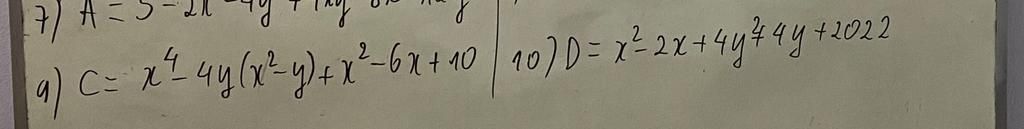 7) A = 5 - 2x
9) C = x⁴ - 4y(x² - y) + x² - 6x + 10
10) D = x² - 2x + 4y² + 4y + 2022